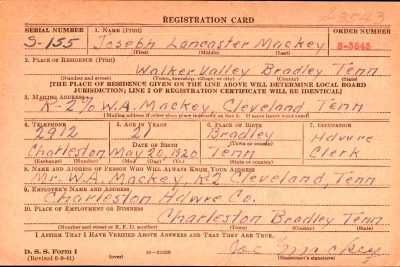 REGISTRATION CARD
SERIAL NUMBER 1. NAME (Print) ORDER NUMBER
S-155 Joseph Lancaster Mackey S-3543
(First) (Middle) (Last)
2. PLACE OF RESIDENCE (Print)
Walker Valley Bradley Tenn
(Number and street) (Town, township, village, or city) (County) (State)
[THE PLACE OF RESIDENCE GIVEN ON THE LINE ABOVE WILL DETERMINE LOCAL BOARD
JURISDICTION; LINE 2 OF REGISTRATION CERTIFICATE WILL BE IDENTICAL]
3. MAILING ADDRESS
R-2 % W.A. Mackey, Cleveland Tenn
[Mailing address if other than place indicated on line 2. If same insert word same]
4. TELEPHONE 5. AGE IN YEARS 6. PLACE OF BIRTH 7. OCCUPATION
2912 21 Bradley Hdwre
DATE OF BIRTH (Town or county)
Charleston May 20, 1920 Tenn Clerk
(Exchange) (Number) (Mo.) (Day) (Yr.) (State or country)
8. NAME AND ADDRESS OF PERSON WHO WILL ALWAYS KNOW YOUR ADDRESS
Mr. W.A. Mackey, R2 Cleveland, Tenn
9. EMPLOYER'S NAME AND ADDRESS
Charleston Hdwre Co.
10. PLACE OF EMPLOYMENT OR BUSINESS
Charleston Bradley Tenn
(Number and street or R. F. D. number) (Town) (County) (State)
I AFFIRM THAT I HAVE VERIFIED ABOVE ANSWERS AND THAT THEY ARE TRUE.
D. S. S. Form 1 Joe Mackey
(Revised 6-9-41) (Registrant's signature)